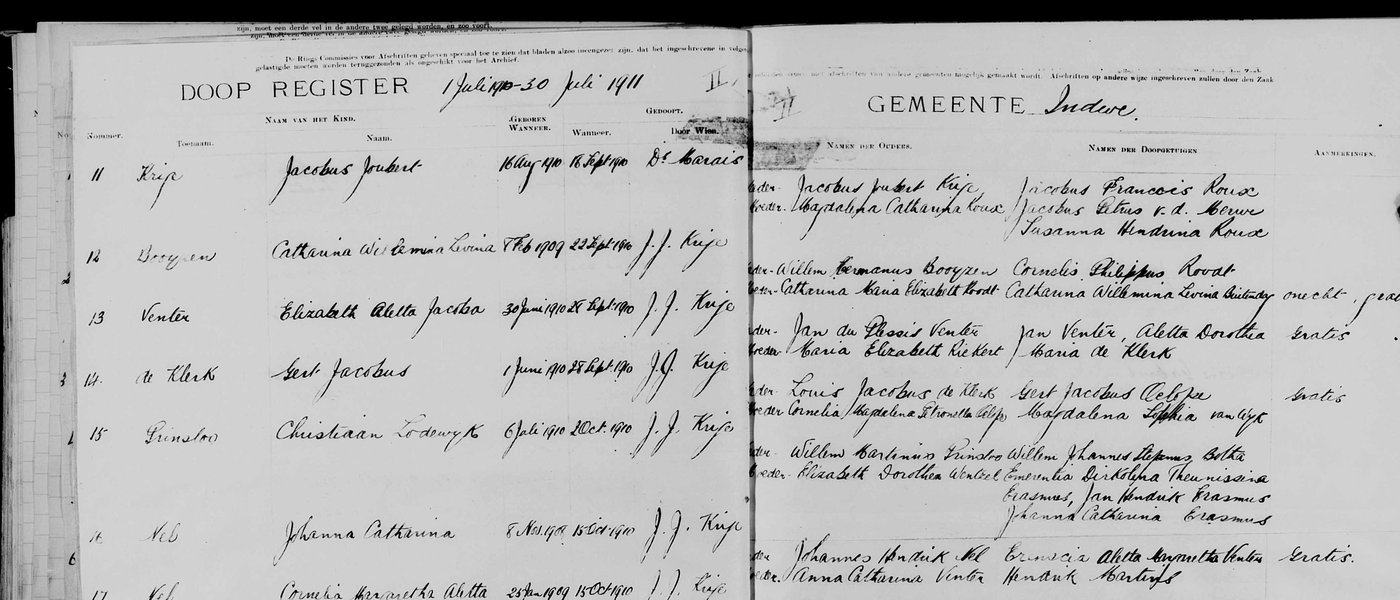 zijn, moet een derde vel in de andere twee gelegd worden, en zoo voort.
De Rings Commissies voor Afschriften gelieven speciaal toe te zien dat bladen alzoo ineengezet zijn, dat het ingeschrevene in volgor
gelastigde moeten worden teruggezonden als ongeschikt voor het Archief.
DOOP REGISTER 1 Juli 1910-30 Juli 1911 II,
Nommer. NAAM VAN HET KIND. GEBOREN WANNEER. GEDOOPT.
Toenaam. Naam. Wanneer. Door Wien.
11 Krije Jacobus Joubert 16 Aug 1910 18 Sept 1910 Ds Marais
12 Booyzen Catharina Willemina Levina 8 Feb 1909 22 Sept 1910 J. J. Krije
13 Venter Elizabeth Aletta Jacoba 30 Juni 1910 28 Sept. 1910 J. J. Krije
14. de Klerk Gert Jacobus 1 Juni 1910 28 Sept. 1910 J. J. Krije
15 Grinsloo Christiaan Lodewyk 6 Juli 1910 2 Oct. 1910 J. J. Krije
16 Nel Johanna Catharina 8 Nov. 1908 15 Oct 1910 J. J. Krije
17 Nel Cornelia Margaretha Aletta 25 Jan 1909 15 Oct 1910 J. J. Krije
Afschriften op andere wijze ingeschreven zullen door den Zaak
II
GEMEENTE Indwe.
NAMEN DER OUDERS. NAMEN DER DOOPGETUIGEN. AANMERKINGEN.
der- Jacobus Joubert Krije Jacobus Francois Roux
oeder- Magdalena Catharina Roux Jacobus Petrus v. d. Merwe
Susanna Hendrina Roux
der- Willem Hermanus Booyzen Cornelis Philippus Roodt
oeder- Catharina Maria Elizabeth Roodt Catharina Willemina Levina Buitendag onecht, grat
der- Jan du Plessis Venter Jan Venter, Aletta Dorothea Gratis
oeder- Maria Elizabeth Riekert Maria de Klerk
der- Louis Jacobus de Klerk Gert Jacobus Oelofse Gratis
oeder Cornelia Magdalena Petronella Oelofse Magdalena Sophia van Wyk
der- Willem Martinus Grinsloo Willem Johannes Stefanus Botha
oeder- Elizabeth Dorothea Wentzel Emerentia Dirkolina Theunissina
Erasmus, Jan Hendrik Erasmus
Johanna Catharina Erasmus
der Johannes Hendrik Nel Aletta Margaretha Venter Gratis.
eder. Anna Catharina Venter Hendrik Martins